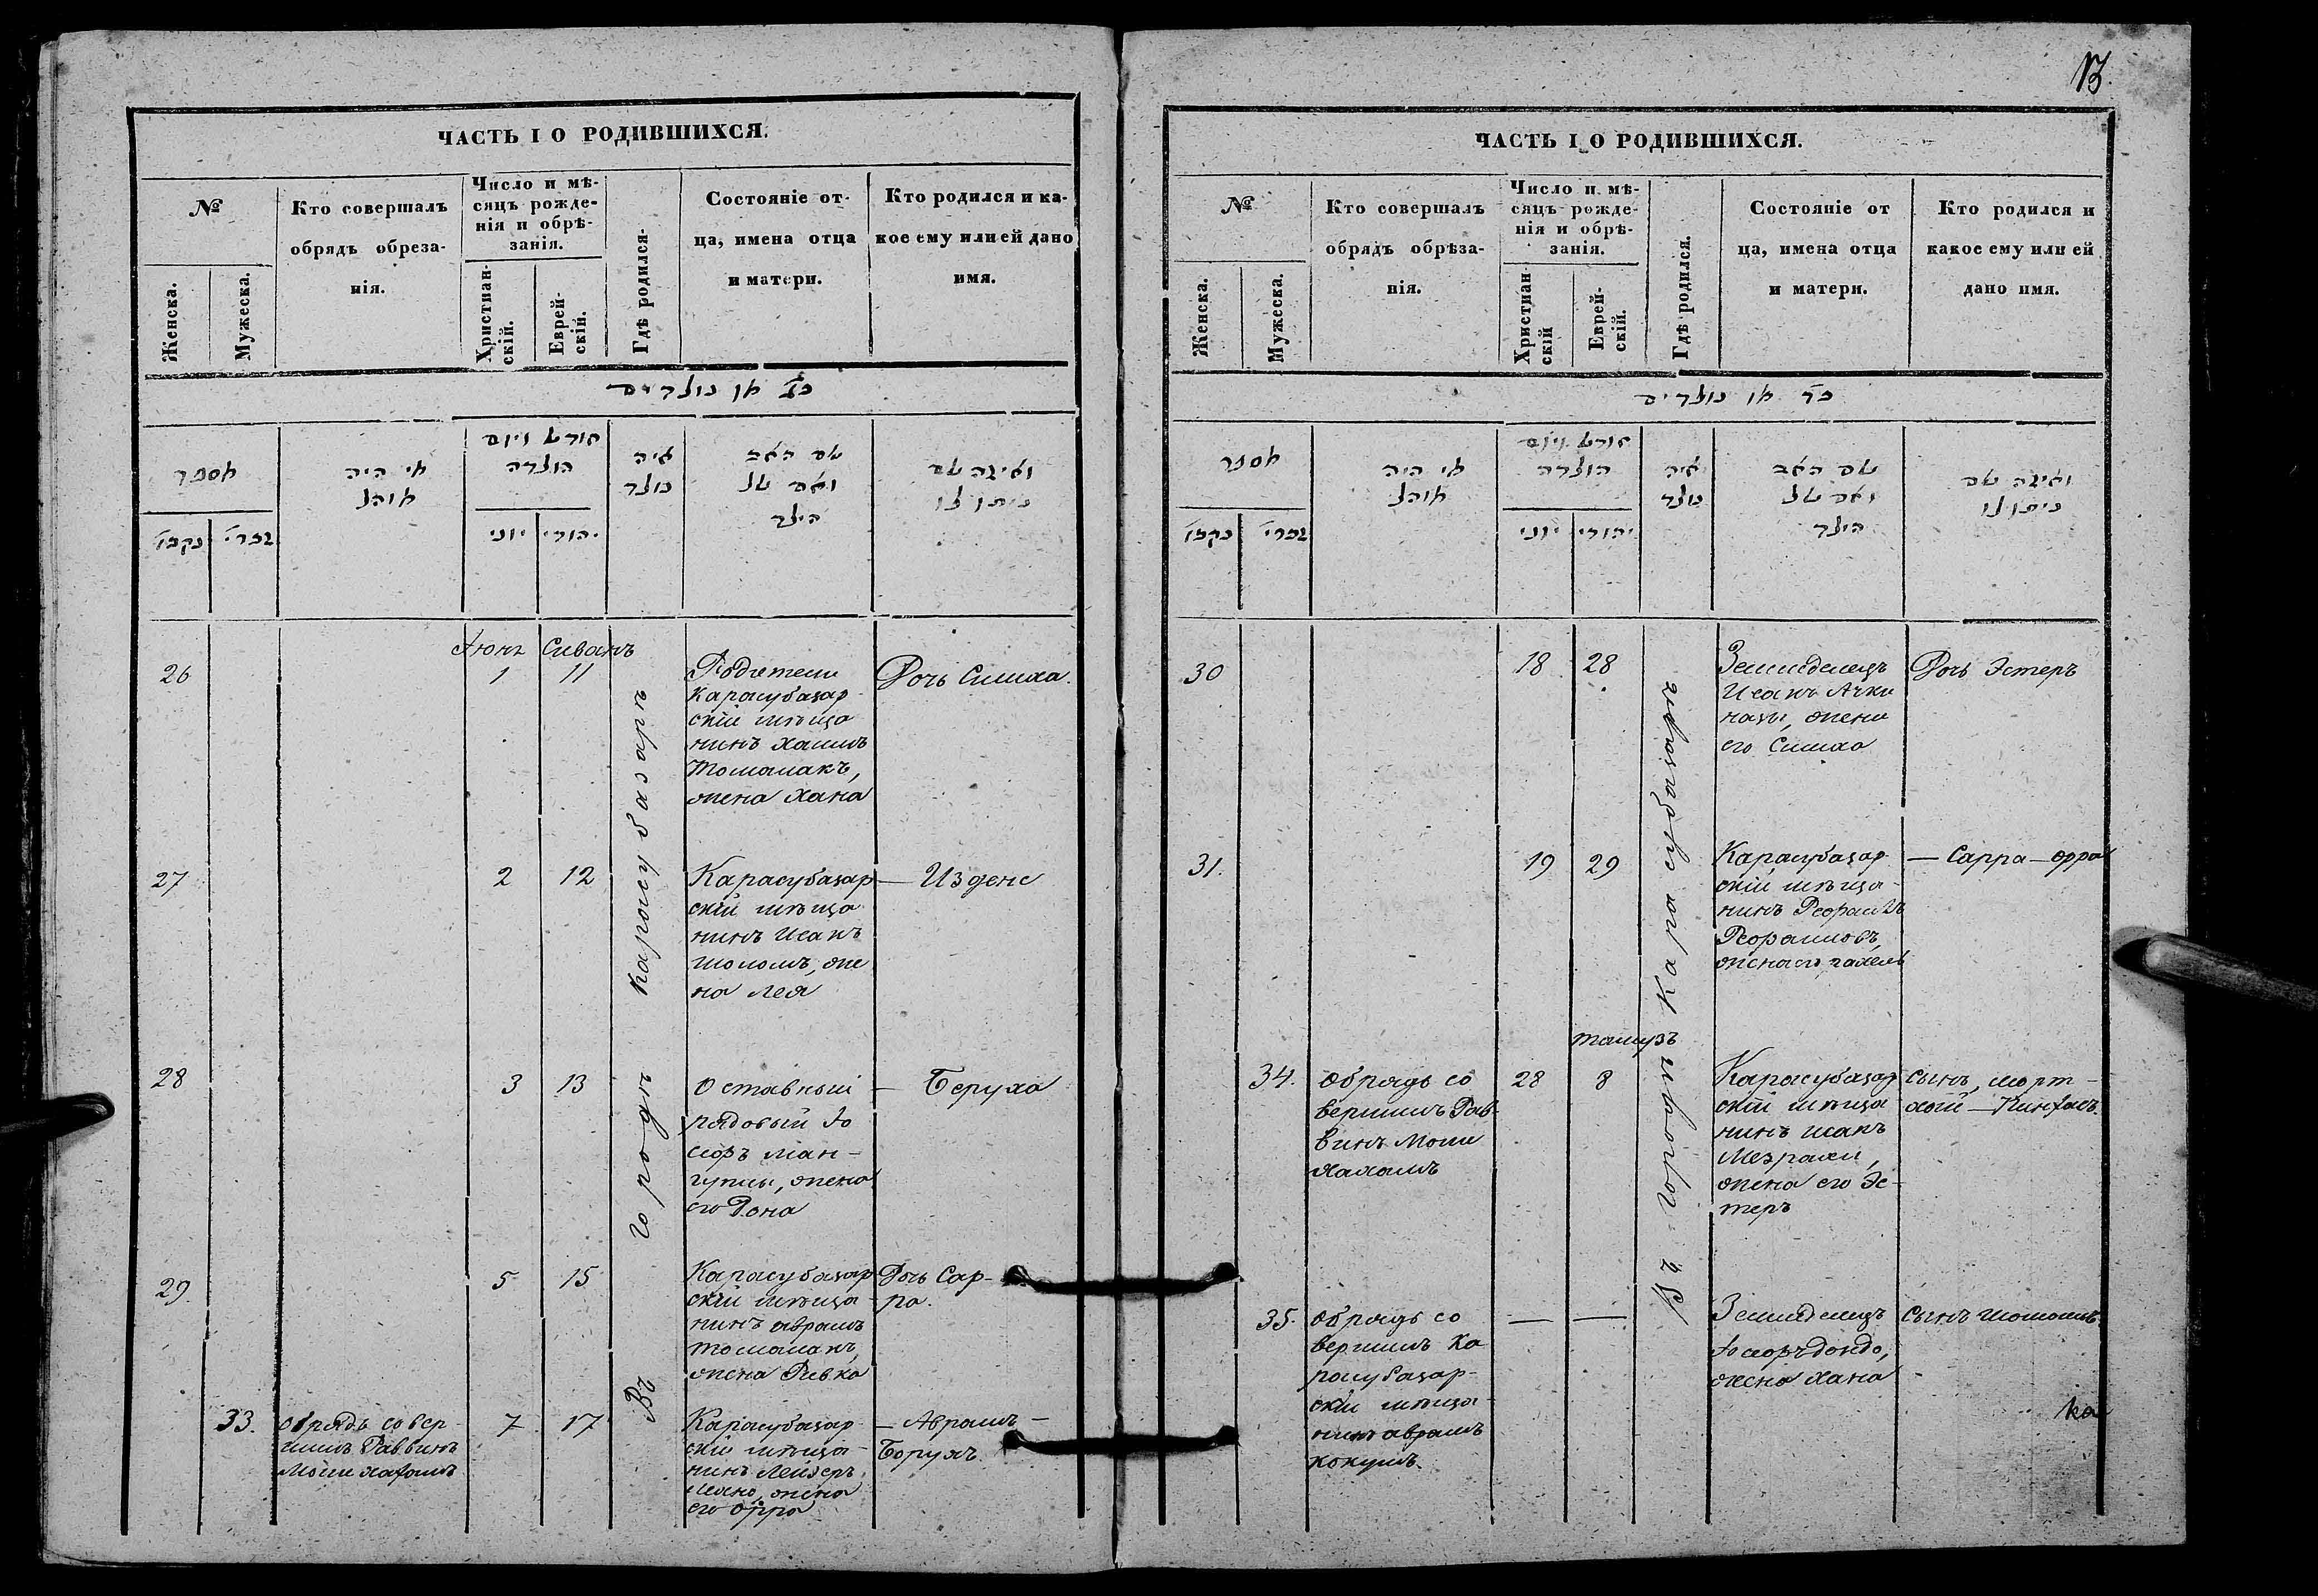 13.
ЧАСТЬ I О РОДИВШИХСЯ.
№
Женска.
Мужеска.
Кто совершалъ
обрядъ обреза-
нія.
Число и мѣ-
сяцъ рожде-
нія и обрѣ-
занія.
Христиан-
скій.
Еврей-
скій.
Гдѣ родился.
Состояніе от-
ца, имена отца
и матери.
Кто родился и ка-
кое ему или ей дано
имя.
מן נולדים
מספר
נקבו
זכרי
מי היה
מוהל
חודש ויום
הולדה
יוני
יהודי
איה
נולד
שם האב
ואם של
הילד
ואיזה שם
ניתן לו
Іюнь Сиванъ
26
1 11
Родители
Карасубазар
скій мѣща
нинъ Хаимъ
Томалакъ,
жена Хана
Дочь Симха.
27
2 12
Карасубазар
скій мѣща
нинъ Исакъ
Шоломъ, же
на Лея
— Издене
28
3 13
Отставный
рядовый Іо
сифъ Ман-
гупли, жена
его Дона
— Беруха
29.
5 15
Карасубазар
скій мѣща-
нинъ Аврамъ
Томалакъ,
жена Ривка
Дочь Сар-
ра.
33.
обрядъ совер-
шилъ Раввинъ
Моши Хахамъ
7 17
Карасубазар-
скій мѣща-
нинъ Лейзеръ
жена
его Орра
— Аврамъ —
Борухъ.
Въ городѣ Карасубазарѣ
ЧАСТЬ I О РОДИВШИХСЯ.
№
Женска.
Мужеска.
Кто совершалъ
обрядъ обрѣза-
нія.
Число и мѣ-
сяцъ рожде-
нія и обрѣ-
занія.
Христиан
скій
Еврей-
скій.
Гдѣ родился.
Состояніе от
ца, имена отца
и матери.
Кто родился и
какое ему или ей
дано имя.
מן נולדים
מספר
נקבו
זכרי
מי היה
מוהל
חודש ויום
הולדה
יוני
יהודי
איה
נולד
שם האב
ואם של
הילד
ואיזה שם
ניתן לו
30
18 28
Земледелецъ
Исакъ Ачки
нази, жена
его Симха
Дочь Эстеръ
31.
19 29
Карасубазар
скій мѣща-
нинъ
жена его Рахель
— Сарра — Орра
Тамузъ
34.
обрядъ со
вершилъ Рав-
винъ Моши
Хахамъ
28 8
Карасубазар
скій мѣща
нинъ Исакъ
Мезрахи,
жена его Эс-
теръ
сынъ, Морт-
хай — Пинхасъ.
35.
обрядъ со
вершилъ Ка
расубазар-
скій мѣща-
нинъ Аврамъ
Кокушъ.
— —
Земледелецъ
Іосифъ Дондо,
жена Хана
Сынъ Шоломъ.
Въ городѣ Карасубазарѣ
ка